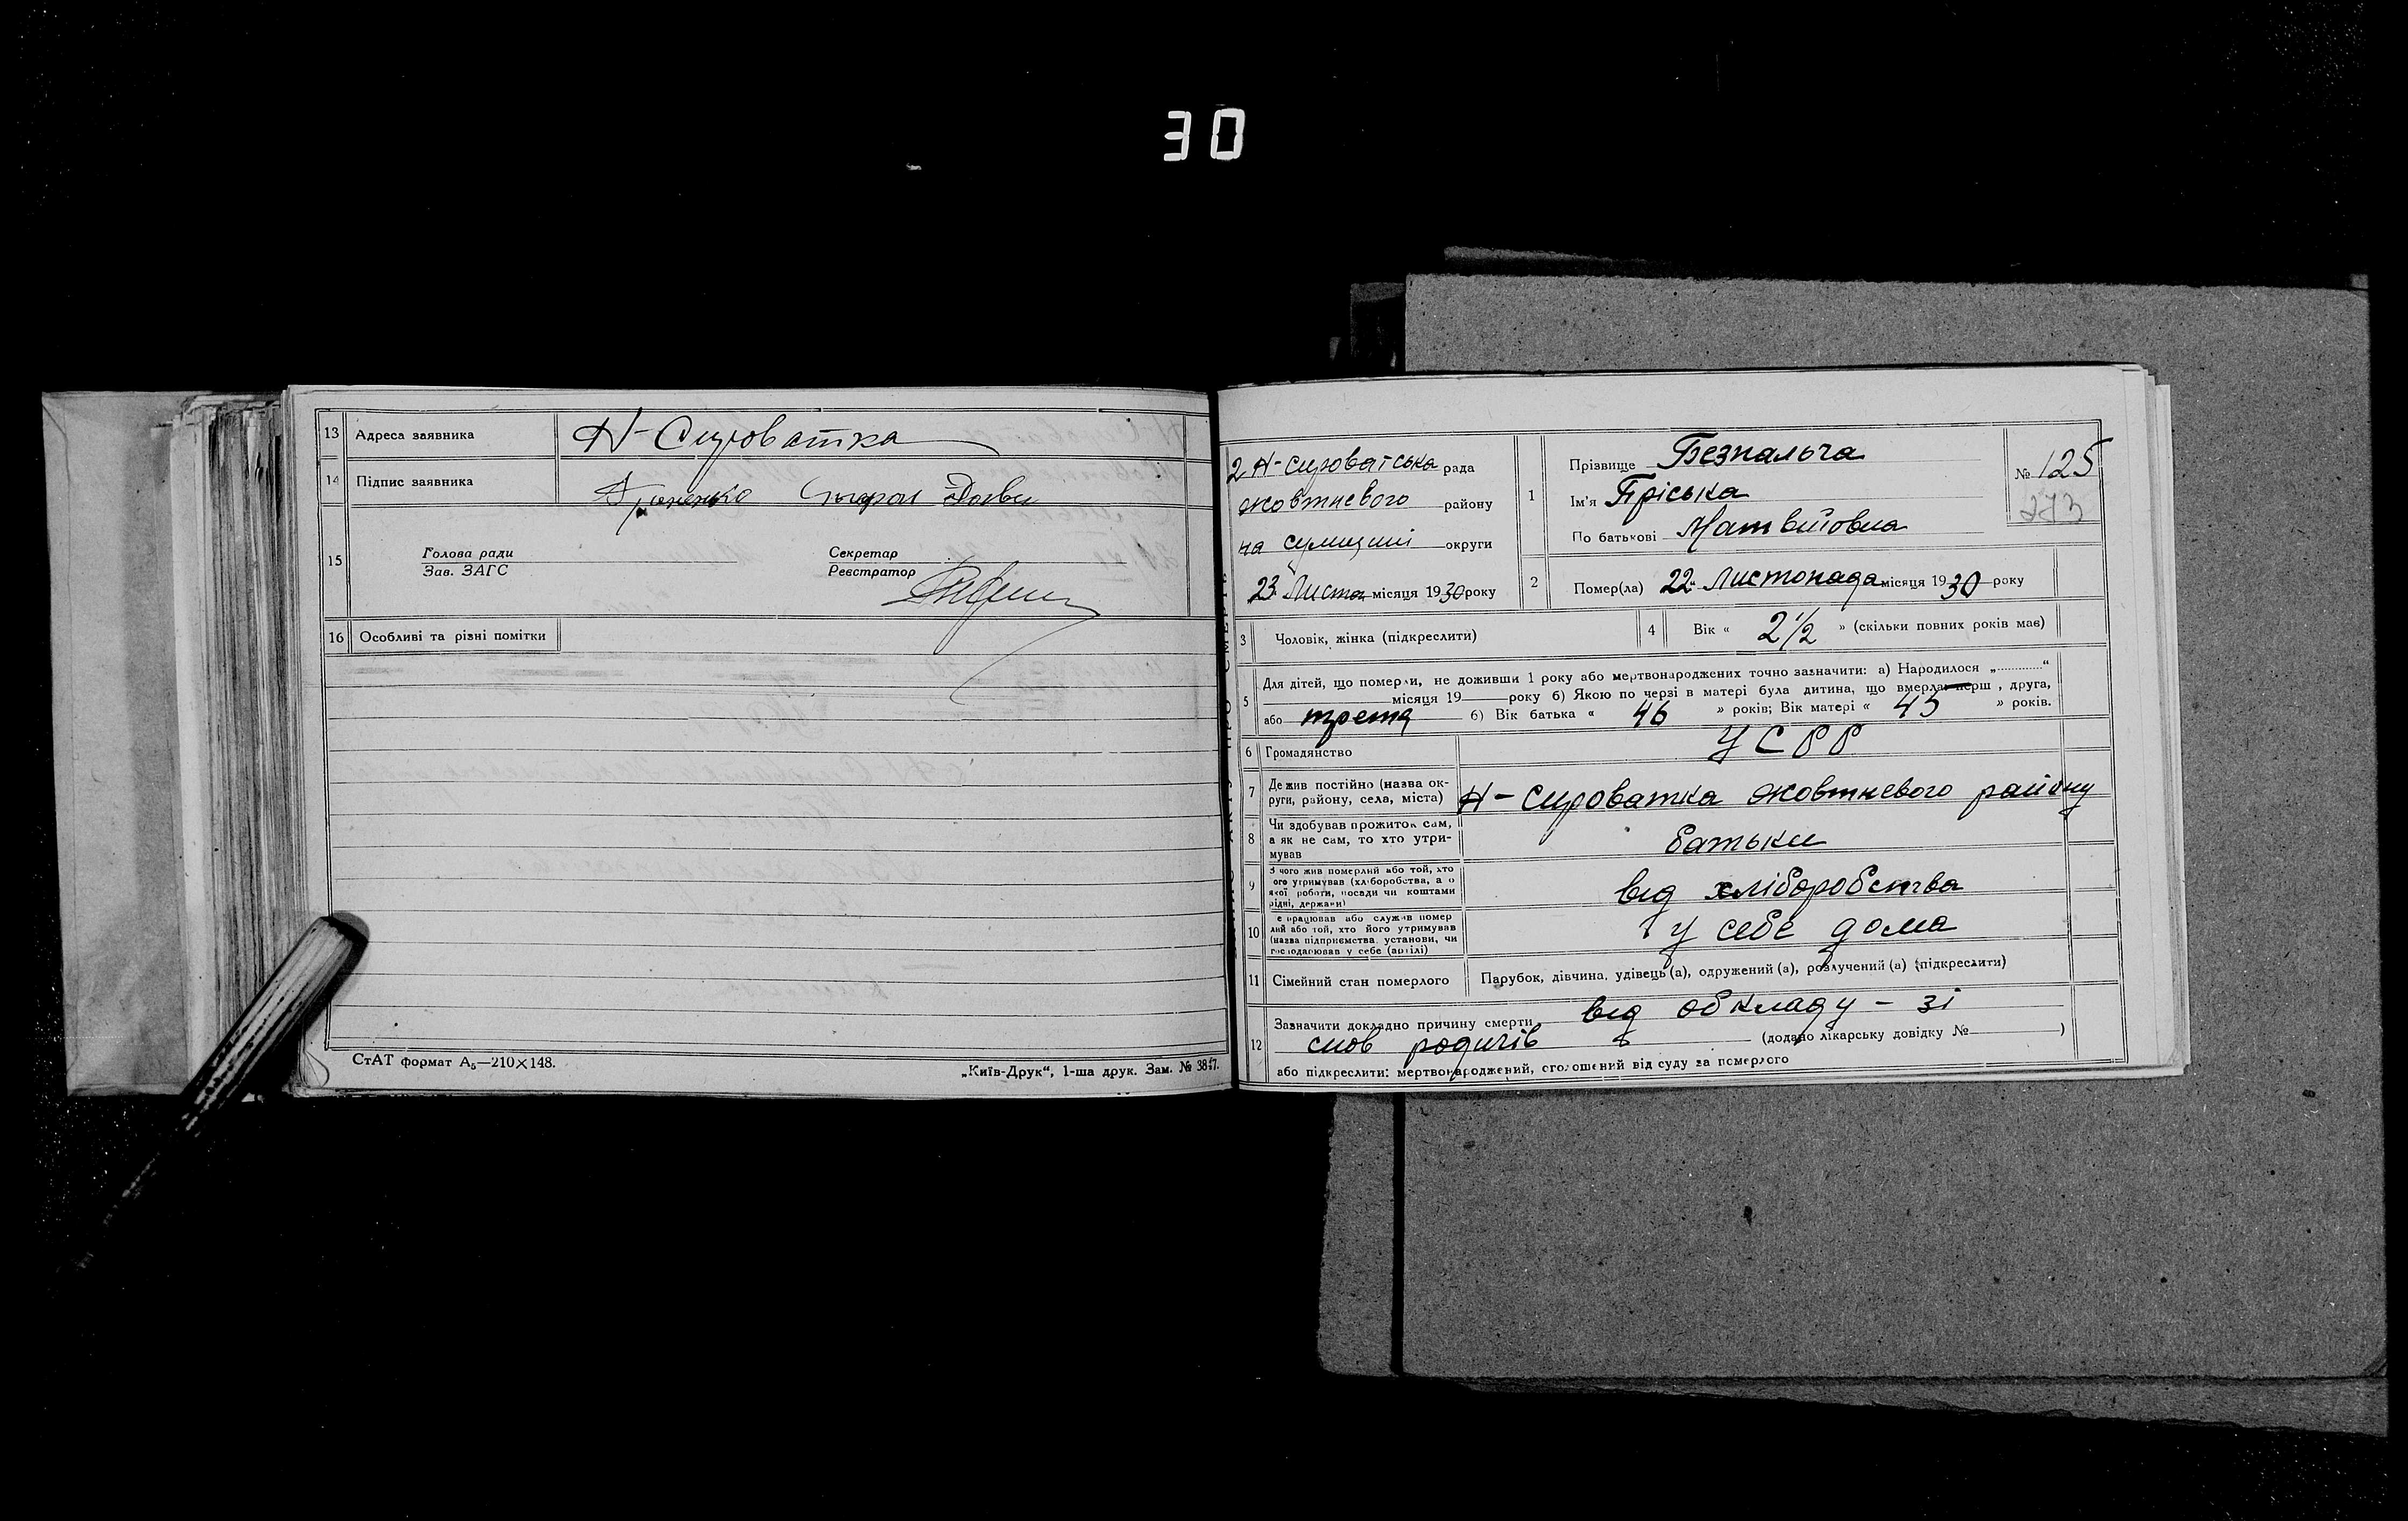 30
13 Адреса заявника Н-Сироватка
14 Підпис заявника
15 Голова ради Секретар
Зав. ЗАГС Реєстратор
16 Особливі та різні помітки
СтАТ формат А₅—210×148.
„Київ-Друк“, 1-ша друк. Зам. № 3847.
2 Н-сироватська рада
жовтневого району
на сумщині округи
23 Листоп місяця 1930 року
1 Прізвище Безпальча
Ім'я Пріська
По батькові Матвіївна
№ 125
273
2 Помер(ла) 22 Листопада місяця 1930 року
3 Чоловік, жінка (підкреслити)
4 Вік « 2 1/2 » (скільки повних років мав)
5 Для дітей, що померли, не доживши 1 року або мертвонароджених точно зазначити: а) Народилося „............“
місяця 19 року б) Якою по черзі в матері була дитина, що вмерла: перш , друга,
або третя б) Вік батька « 46 » років; Вік матері « 45 » років.
6 Громадянство УСРР
7 Де жив постійно (назва ок-
руги, району, села, міста) Н-Сироватка жовтневого району
8 Чи здобував прожиток сам,
а як не сам, то хто утри-
мував батьки
9 З чого жив померлий або той, хто
ого утримував (хліборобства, а о
якої роботи, посади чи коштами
рідні, держави) від хліборобства
10 е працював або служив помер
лий або той, хто його утримував
(назва підприємства, установи, чи
господарював у себе (артілі) у себе дома
11 Сімейний стан померлого Парубок, дівчина, удівець (а), одружений (а), розлучений (а) (підкреслити)
12 Зазначити докладно причину смерти від обкладу - зі
слов родичів (додано лікарську довідку № )
або підкреслити: мертвонароджений, оголошений від суду за померлого